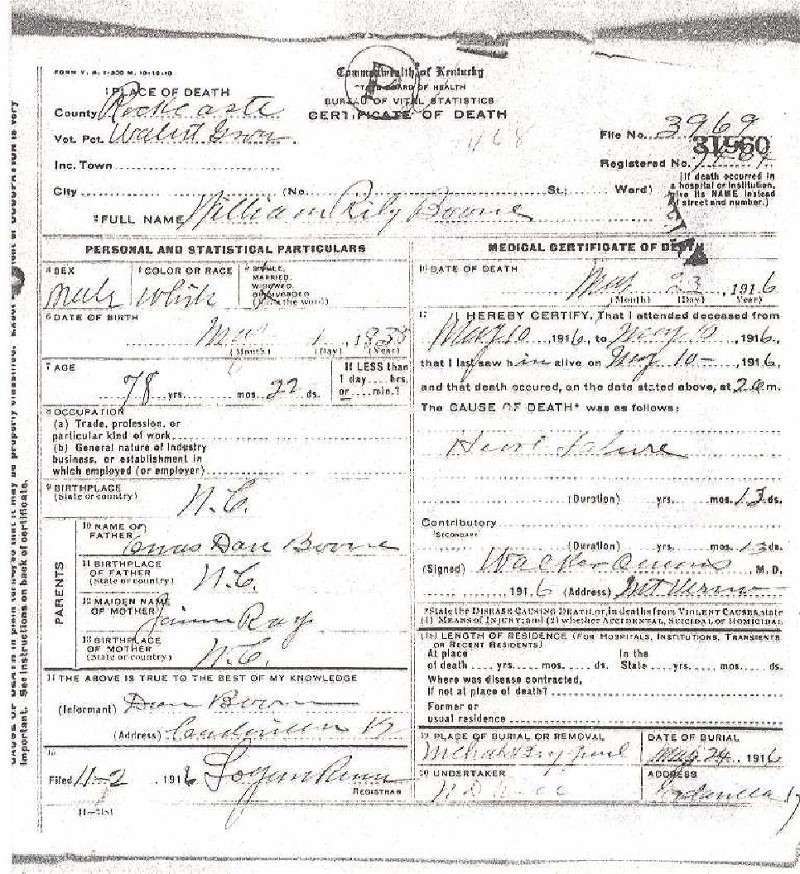 FORM V. S. 1-300 M. 10-10-10
Commonwealth of Kentucky
STATE BOARD OF HEALTH
BUREAU OF VITAL STATISTICS
CERTIFICATE OF DEATH
1 PLACE OF DEATH
County Rockcastle
Vot. Pct. Walnut Grove
Inc. Town
City (No. St.; Ward)
File No. 3969
31960
Registered No.
(If death occurred in a hospital or institution, give its NAME instead of street and number.)
2 FULL NAME William Rily Boone
PERSONAL AND STATISTICAL PARTICULARS
3 SEX
male
4 COLOR OR RACE
White
5 SINGLE, MARRIED, WIDOWED, OR DIVORCED (Write the word)
6 DATE OF BIRTH
May 1, 1838
(Month) (Day) (Year)
7 AGE
78 yrs. mos. 22 ds.
If LESS than 1 day ... hrs. or ... min.?
8 OCCUPATION
(a) Trade, profession, or
particular kind of work
(b) General nature of industry
business, or establishment in
which employed (or employer)
9 BIRTHPLACE
(State or country)
N.C.
PARENTS
10 NAME OF
FATHER
Dan Boone
11 BIRTHPLACE
OF FATHER
(State or country)
N.C.
12 MAIDEN NAME
OF MOTHER
Ray
13 BIRTHPLACE
OF MOTHER
(State or country)
N.C.
14 THE ABOVE IS TRUE TO THE BEST OF MY KNOWLEDGE
(Informant) Dan Boone
(Address)
15
Filed 11-2, 1916 Logan
REGISTRAR
11-3151
MEDICAL CERTIFICATE OF DEATH
16 DATE OF DEATH
May 23, 1916
(Month) (Day) (Year)
17 I HEREBY CERTIFY, That I attended deceased from
May 10 1916, to May 10, 1916,
that I last saw him alive on May 10, 1916,
and that death occured, on the date stated above, at 2 a m.
The CAUSE OF DEATH* was as follows:
Heart Failure
(Duration) yrs. mos. 13 ds.
Contributory
SECONDARY
(Duration) yrs. mos. 13 ds.
(Signed) Walker Owens M. D.
1916 (Address) Mt Vernon
*State the DISEASE CAUSING DEATH, or, in deaths from VIOLENT CAUSES, state
(1) MEANS OF INJURY; and (2) whether ACCIDENTAL, SUICIDAL OR HOMICIDAL
18 LENGTH OF RESIDENCE (FOR HOSPITALS, INSTITUTIONS, TRANSIENTS
OR RECENT RESIDENTS)
At place In the
of death yrs. mos. ds. State yrs. mos. ds.
Where was disease contracted,
if not at place of death?
Former or
usual residence
19 PLACE OF BURIAL OR REMOVAL
DATE OF BURIAL
May 24, 1916
20 UNDERTAKER
ADDRESS
important. See instructions on back of certificate.